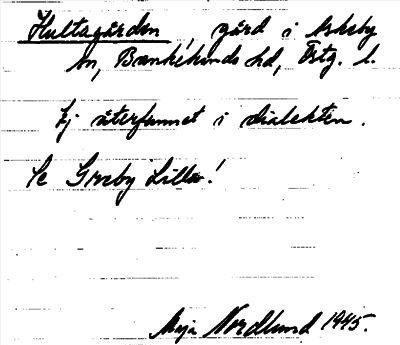 Hultsgården, gård i Askeby
sn, Bankekinds hd, Östg. l.
Ej återfunnet i dialekten.
Se Greby Lilla!
Maja Nordlund 1945.